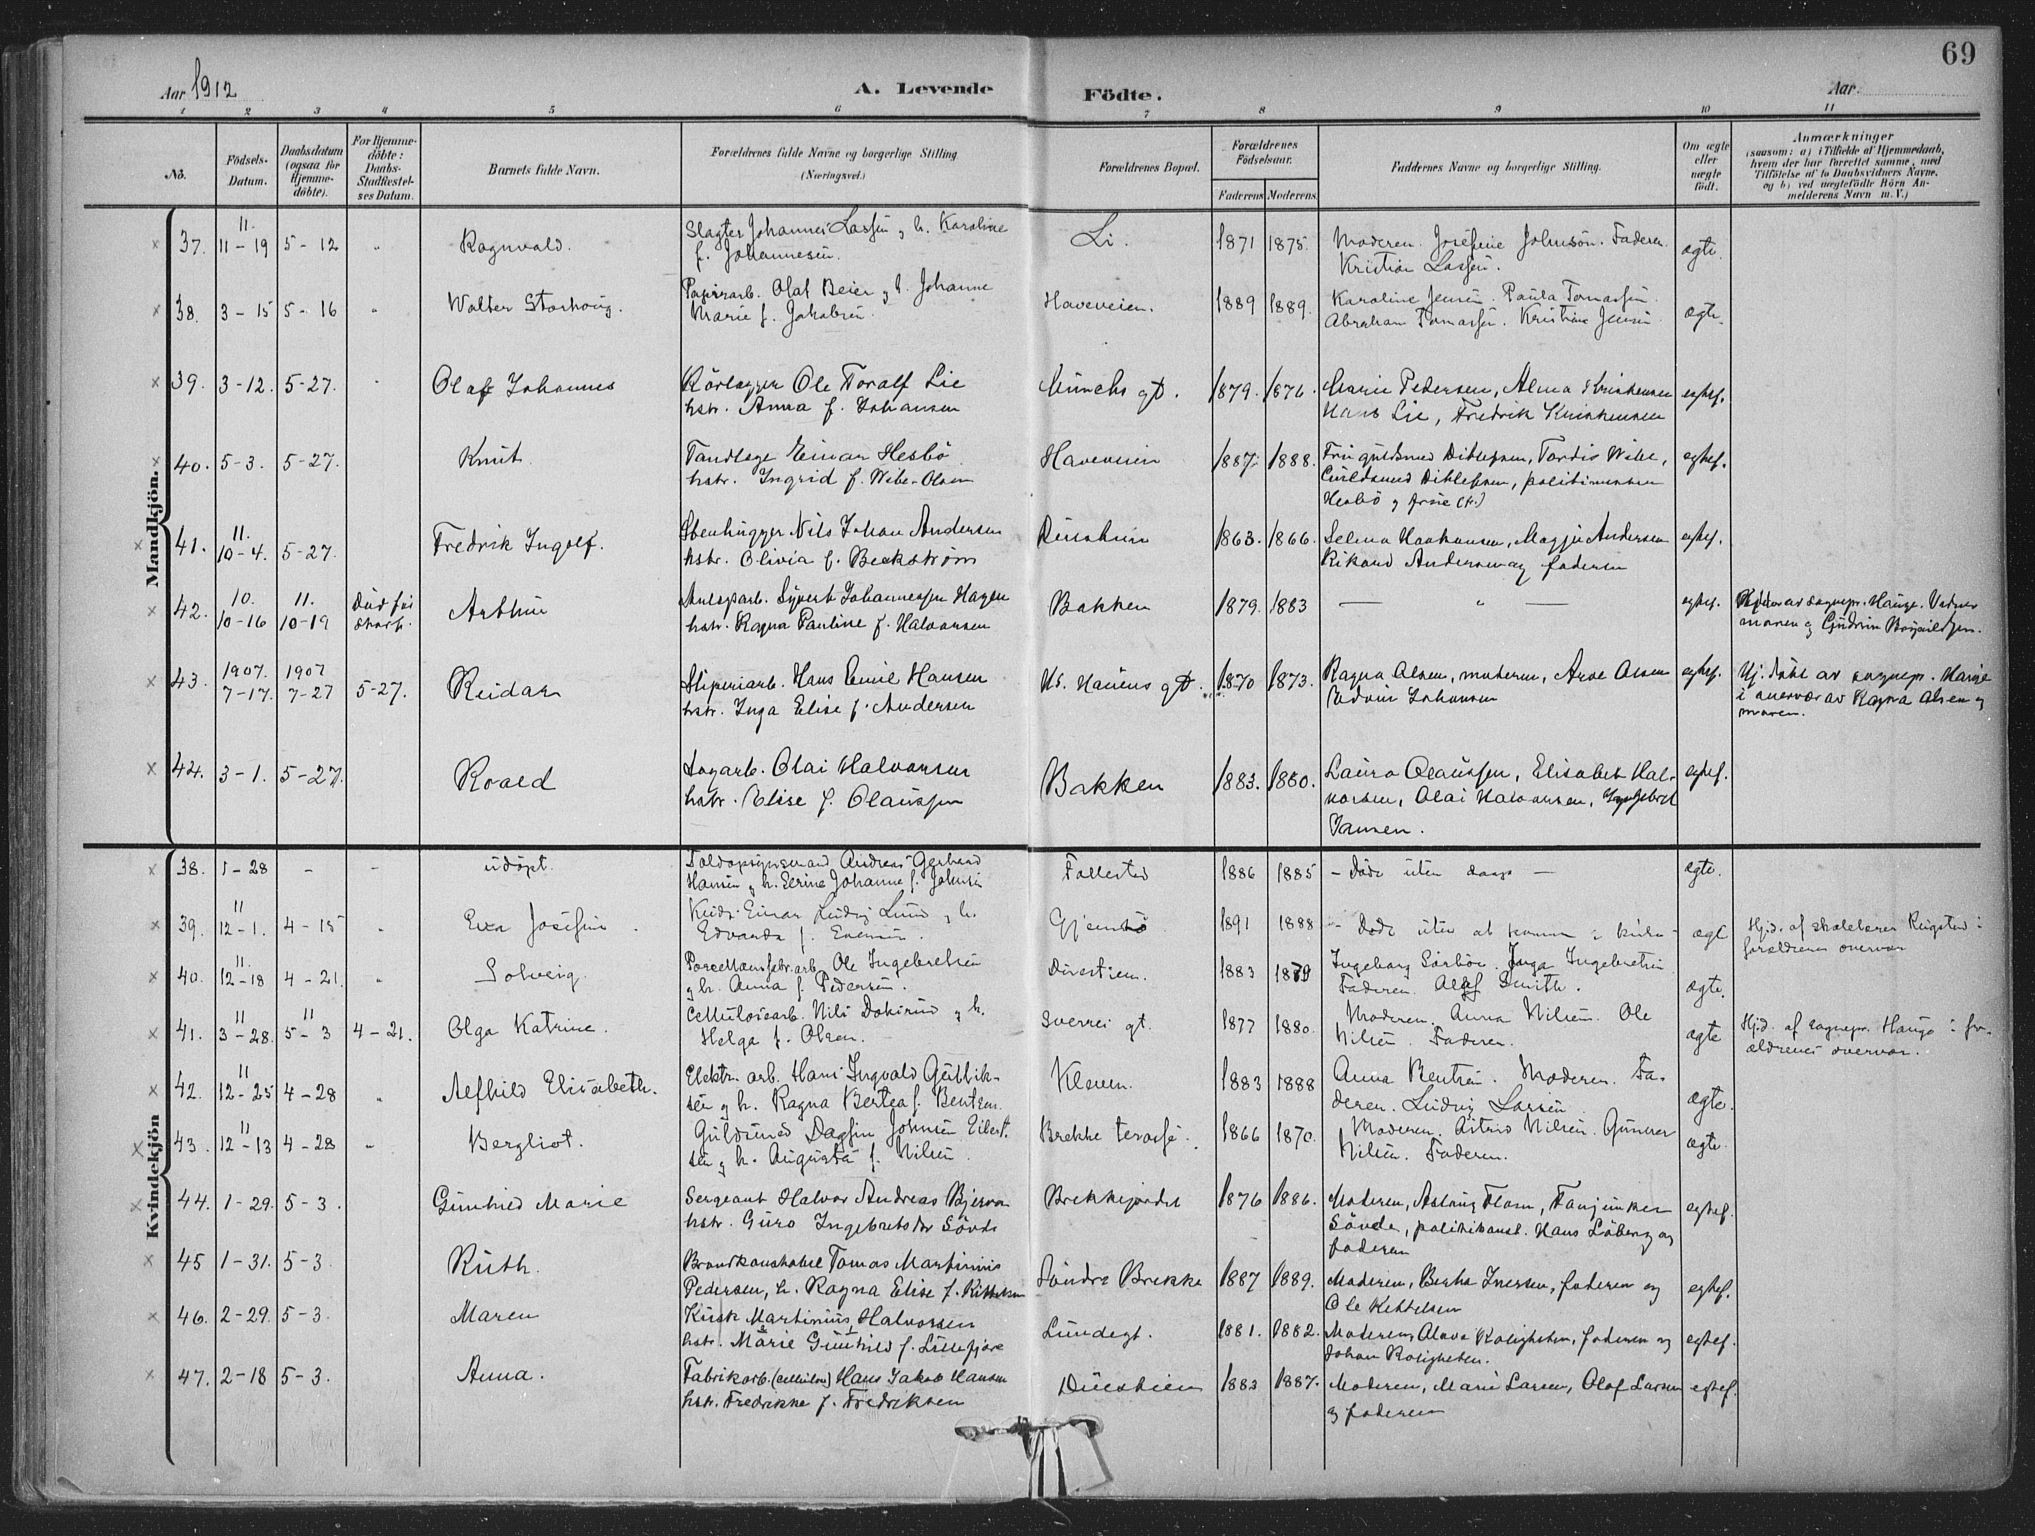 69
Aar 1912
A. Levende
Födte.
Aar
1 2 3 4 5 6 7 8 9 10 11
No.
Födsels-
Datum.
Daabsdatum
(ogsaa for
Hjemme-
döbte).
For Hjemme-
döbte:
Daabs-
Stadfæstel-
ses Datum.
Barnets fulde Navn.
Forældrenes fulde Navne og borgerlige Stilling
(Næringsvei.)
Forældrenes Bopæl.
Forældrenes
Födselsaar.
Faderens Moderens
Faddernes Navne og borgerlige Stilling.
Om ægte
eller
uægte
födt.
Anmærkninger
(saasom: a) i Tilfælde af Hjemmedaab,
hvem der har forrettet samme, med
Tilföielse af to Daabsvidners Navne,
og b) ved uægtefödte Börn An-
melderens Navn m. V.)
Mandkjön.
37. 11. 11-19 5-12 " Ragnvald.
Slagter Johannes Lassen og h. Karoline
f. Johannesen.
Li. 1871 1875.
Moderen. Josefine Johnson. Faderen.
Kristian Lassen.
ægte.
38. 3-15 5-16 " Walter Storhoug.
Papirarb. Olaf Beier og h. Johanne
Marie f. Jakobsen.
Haveveien. 1889 1889.
Karoline Jensen. Paula Tomassen.
Abraham Tomassen. Kristian Jensen
ægte.
39. 3-12. 5-27. " Olaf Johannes
Rörlegger Ole Toralf Lie
hstr. Anna f. Johansen
Munchs gt. 1879. 1876.
Marie Pedersen, Alma Kristensen
Hans Lie, Fredrik Kristensen
egtef.
40. 5-3. 5-27. Knut
Tandlege Einar Hesbö
hstr. Ingrid f. Wibe-Olsen
Haveveien 1887. 1888.
Ditlefsen, Tordis Wibe,
Guldsmed Ditlefsen,
Hesbö og
egtef.
41. 11. 10-4. 5-27. Fredrik Ingolf.
Stenhugger Nils Johan Andersen
hstr. Olivia f. Beckström
1863. 1866.
Selma Haakonsen, Magja Andersen
Rikard Andersen og faderen
egtef.
42. 10. 10-16 11. 10-19 Död för
Arthur
Sivert Johannessen Hagen
hstr. Ragna Pauline f. Halvorsen
Bakken 1879. 1883
— " —
egtef.
av sognepr. Hauge. Vidner
moren og Gudrun
43. 1907. 7-17. 1907 7-27 5-27. Reidar
Sliperiarb. Hans Emil Hansen
hstr. Inga Elise f. Andersen
Hs. Hauens gt. 1870 1873.
Ragna Olsen, moderen, Arve Olsen
Edvin Johansen
egtef.
Hj. döbt av sognepr. Hauge
i nærvær av Ragna Olsen og
moren.
44. 3-1. 5-27. Roald
Sagarb. Olai Halvorsen
hstr. Elise f. Olaussen
Bakken 1883. 1880.
Laura Olaussen, Elisabet Hal-
vorsen, Olai Halvorsen, Ingebret
Jansen.
egtef.
Kvindekjön
38. 1-28 - - udöpt.
Toldopsynsmand Andreas Gerhard
Hansen og h. Elvine Johanne f. Johnsen
Follestad 1886 1885
- Döde uten daap -
ægte.
39. 11 12-1. 4-15 " Eva Josefine.
Kusk Einar Ludvig Lund og h.
Edvarda f. Evensen.
Gjemsö 1891 1888
- Döde uten at komme i kirke -
ægte
Hj.d. af skolelærer Ringstad i
foreldrenes overvær
40. 11 12-18 4-21 " Solveig.
Porcellænsfabr.arb. Ole Ingebretsen
og h. Anna f. Pedersen.
1883 1879
Ingeborg Sörbö. Inga Ingebretsen
Faderen. Olaf Smith.
ægte.
41. 11 3-28. 11 5-3 4-21. Olga Katrine.
Cellulosearb. Nils Dokirud og h.
Helga f. Olsen.
Sverres gt. 1877 1880.
Moderen. Anna Nilsen. Ole
Nilsen. Faderen.
ægte
Hj.d. af sognepr. Hauge i for-
ældrenes overvær.
42. 11 12-25 4-28 " Alfhild Elisabeth.
Elektr. arb. Hans Ingvald Gullik-
sen og h. Ragna Bertea f. Bentsen.
Kleven. 1883 1888
Anna Bentsen. Moderen. Fa-
deren. Ludvig Larsen.
ægte.
43. 11 12-13 4-28 " Bergliot.
Guldsmed Dagfin Johnsen Eilert-
sen og h. Augusta f. Nilsen.
Brekke terasse. 1866 1870.
Moderen. Astrid Nilsen. Gunnar
Nilsen. Faderen.
ægte.
44. 1-29. 5-3. Gunhild Marie
Sergeant Halvor Andreas Bjervan
hstr. Guro Ingebretsdtr Sövde
Brekkejordet 1876 1886.
Moderen, Aslaug Flom, Fanejunker
Sövde, politikonst. Hans Löberg og
faderen
egtef.
45 1-31. 5-3 Ruth.
Brandkonstabel Tomas Martinius
Pedersen, h. Ragna Elise f. Kittelsen
Söndre Brekke 1887 1889.
Moderen, Berta Iversen, faderen og
Ole Kittelsen
egtef.
46. 2-29. 5-3. Maren
Kusk Martinius Halvorsen
hstr. Marie Gunhild f. Lillefjære
Lundegt. 1881. 1882.
Moderen, Olava Roligheten, faderen og
Johan Roligheten.
egtef.
47. 2-18 5-3. Anna.
Fabrikarb. (cellulose) Hans Jakob Hansen
hstr. Fredrikke f. Fredriksen
1883 1887.
Moderen, Marie Larsen, Olaf Larsen
og faderen
egtef.